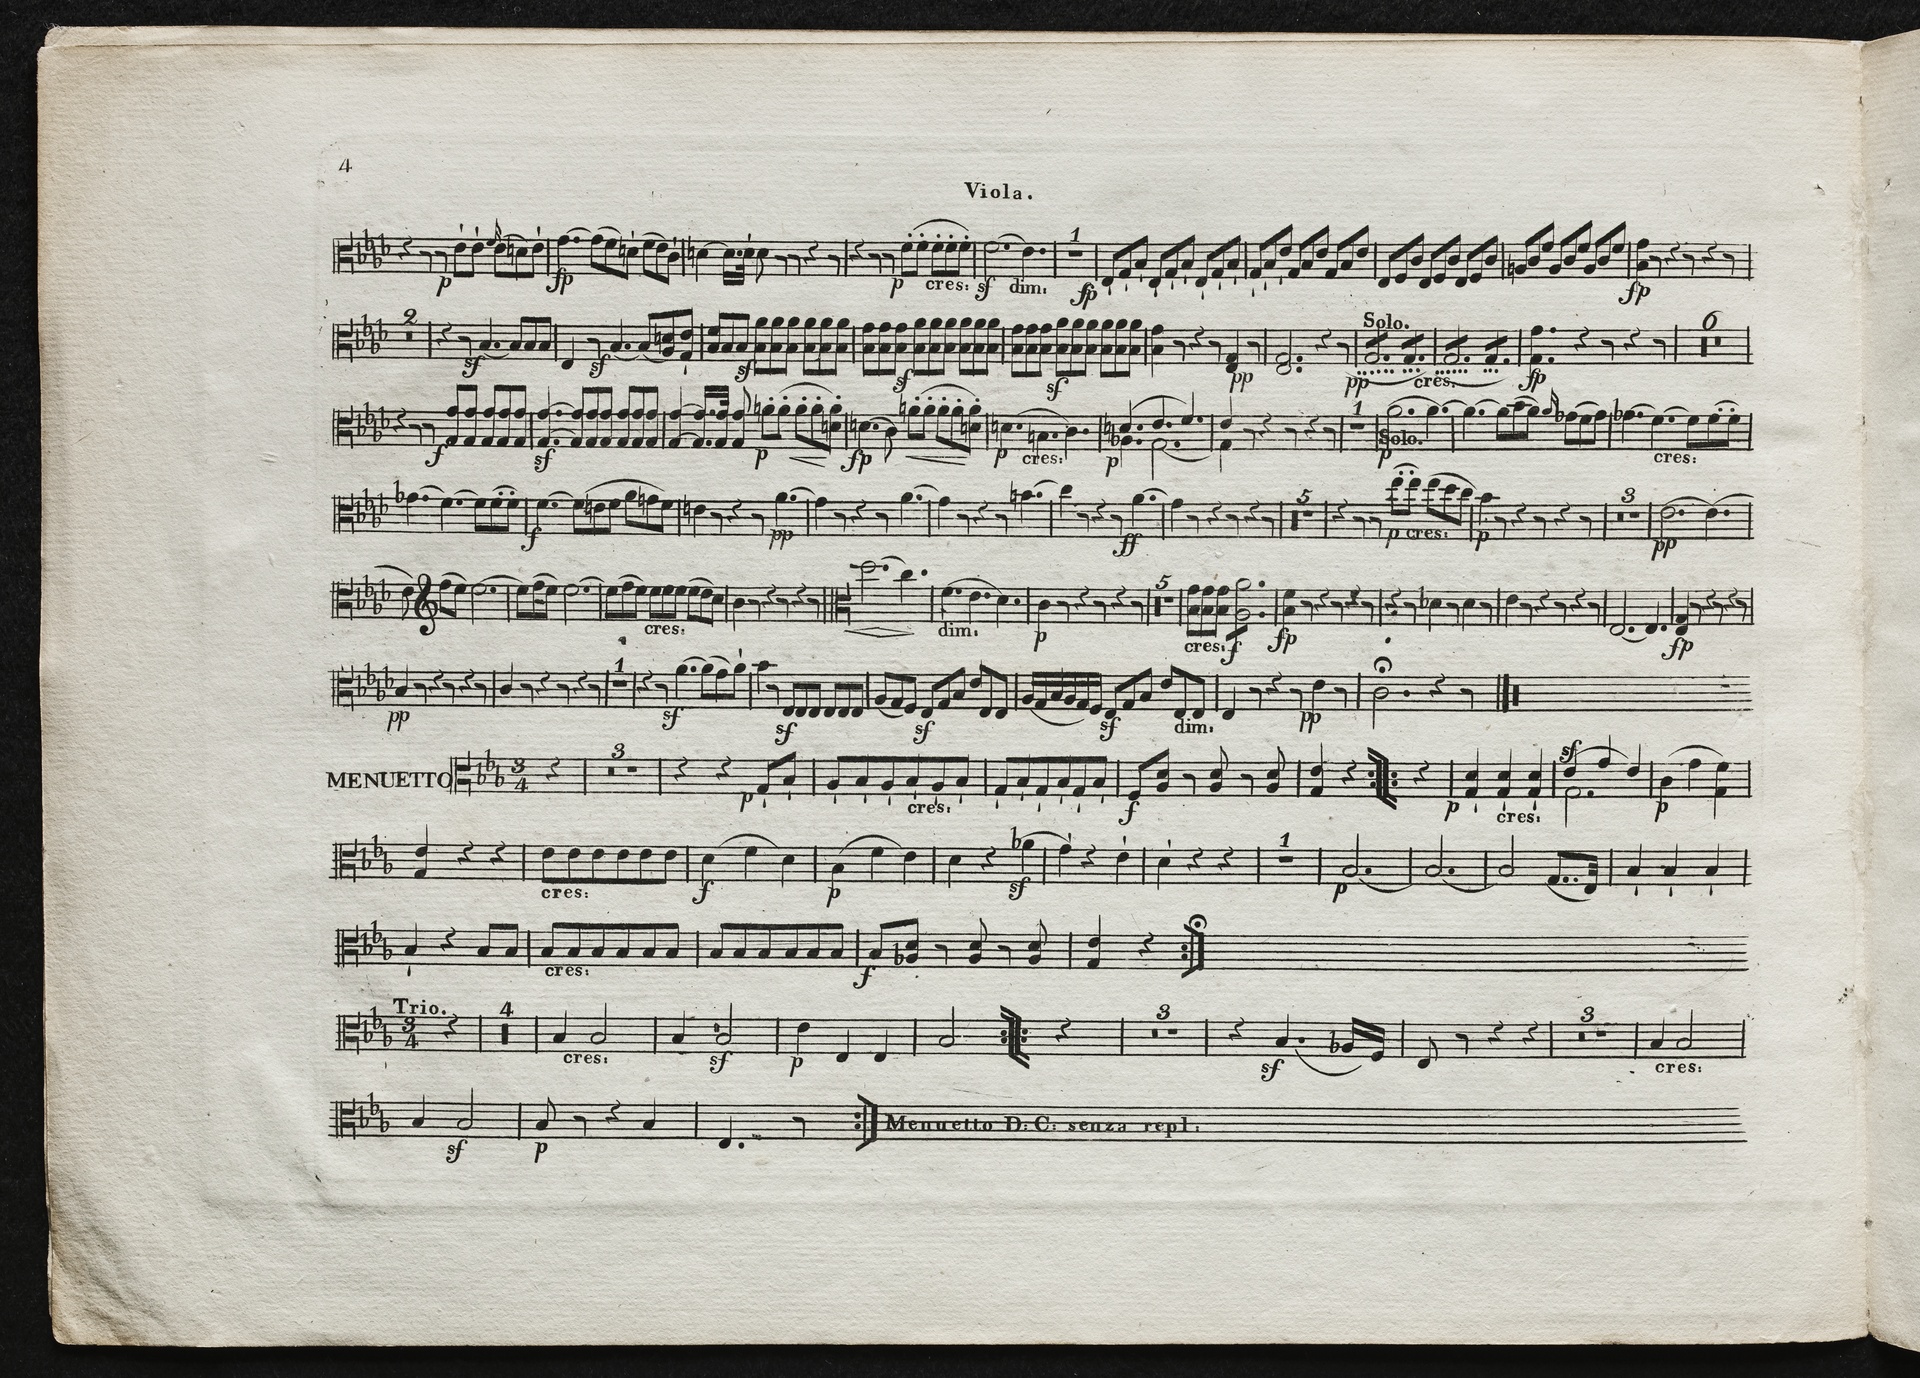 4
Viola.
1
p fp p cres: sf dim: fp fp
2 Solo. 6
sf sf sf sf sf pp pp cres: fp
1
f sf p fp p cres: p Solo. p cres:
5 3
f pp ff p cres: p pp
5
cres: dim: p cres: f fp fp
1
pp sf sf sf sf dim: pp
3 sf
MENUETTO 3/4 p cres: f p cres: p
1
cres: f p sf p
cres: f
Trio. 4 3 3
3/4 cres: sf p sf cres:
Menuetto D: C: senza repl:
sf p